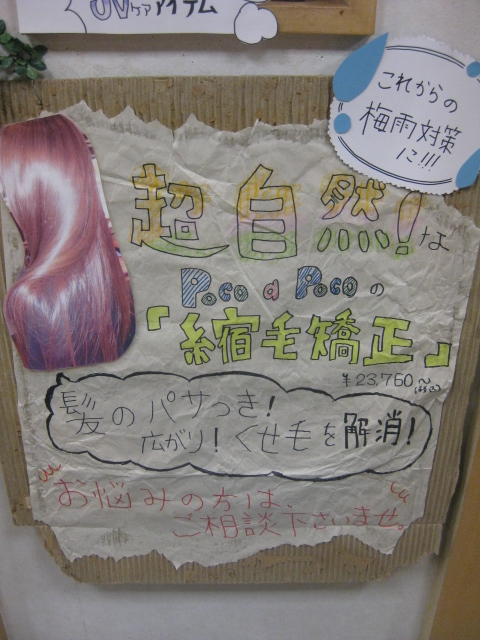 UVケアアイテム
これからの
梅雨対策
に!!!
超自然!な
Poco a Pocoの
「縮毛矯正」
¥23,760~
髪のパサつき!
広がり!くせ毛を解消!
お悩みの方は、
ご相談下さいませ。